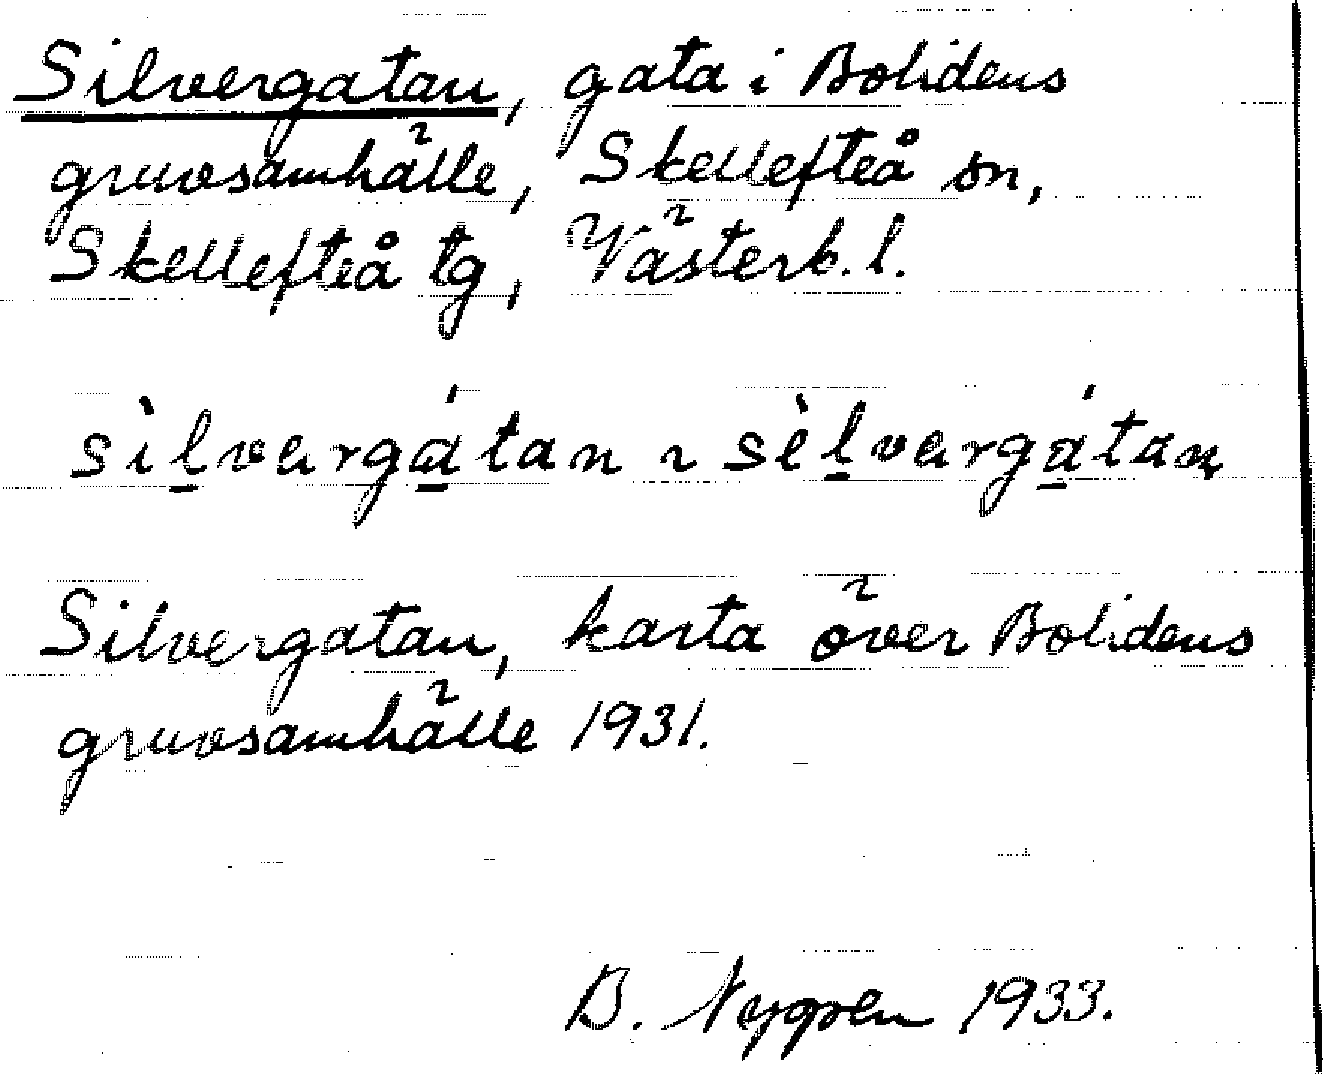 Silvergatan, gata i Bolidens
gruvsamhälle, Skellefteå sn,
Skellefteå tg, Västerb. l.
sìlvergátan ~ sèlvergátan
Silvergatan, karta över Bolidens
gruvsamhälle 1931.
B. Nygren 1933.